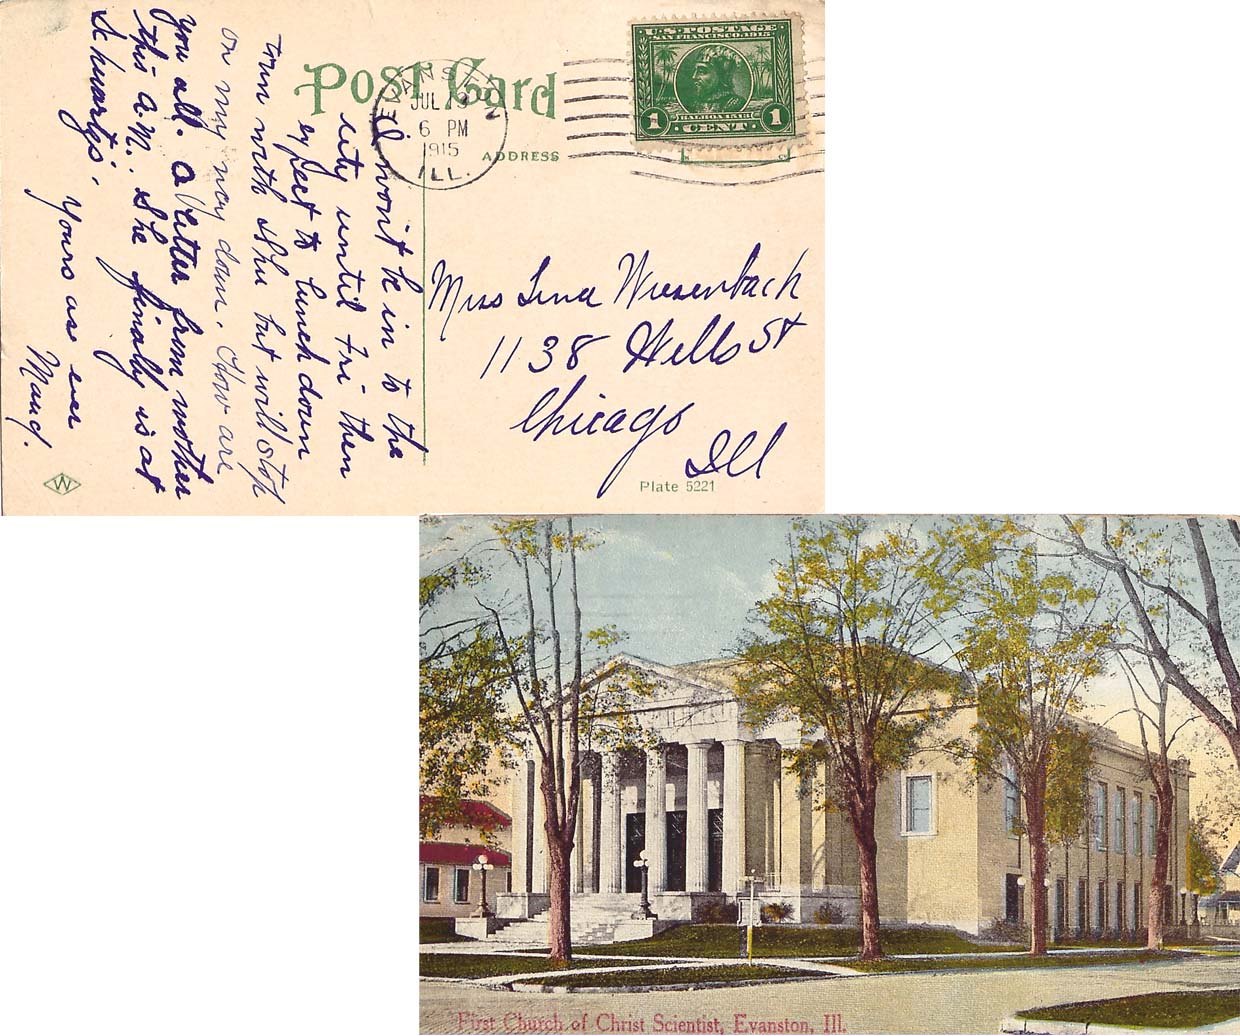 Post Card
EVANSTON
JUL 13
6 PM
1915
ILL.
U.S. POSTAGE
SAN FRANCISCO 1915
BALBOA 1513
1 CENT 1
ADDRESS
I won't be in to the
city until Fri- then
expect to lunch down
town with she but will stop
on my way down. How are
you all. A letter from mother
this a.m. She finally is at
Schwartz's.
Yours as ever
Maud.
Miss Lina Wiesenbach
1138 Wells St
Chicago
Ill
W
Plate 5221
First Church of Christ Scientist, Evanston, Ill.